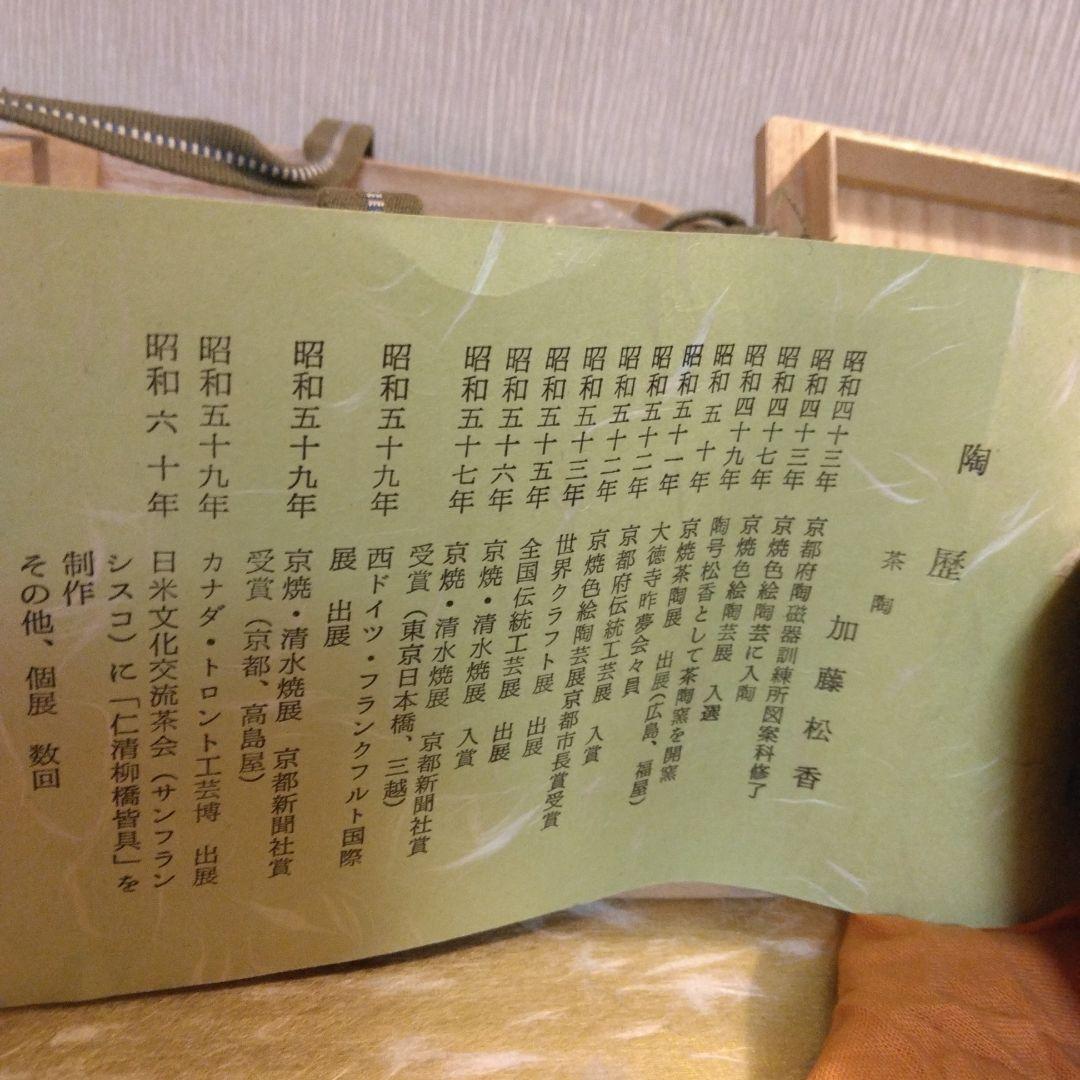 陶歴
茶陶 加藤松香
昭和四十三年 京都府陶磁器訓練所図案科修了
昭和四十三年 京焼色絵陶芸に入陶
昭和四十七年 京焼色絵陶芸展 入選
昭和四十九年 陶号松香として茶陶窯を開窯
昭和五十年 京焼茶陶展 出展(広島、福屋)
昭和五十一年 大徳寺昨夢会々員
昭和五十二年 京都府伝統工芸展 入賞
昭和五十二年 京焼色絵陶芸展京都市長賞受賞
昭和五十三年 世界クラフト展 出展
昭和五十五年 全国伝統工芸展 出展
昭和五十六年 京焼・清水焼展 入賞
昭和五十七年 京焼・清水焼展 京都新聞社賞
受賞(東京日本橋、三越)
昭和五十九年 西ドイツ・フランクフルト国際
展 出展
昭和五十九年 京焼・清水焼展 京都新聞社賞
受賞(京都、高島屋)
昭和五十九年 カナダ・トロント工芸博 出展
昭和六十年 日米文化交流茶会(サンフラン
シスコ)に「仁清柳橋皆具」を
制作
その他、個展 数回